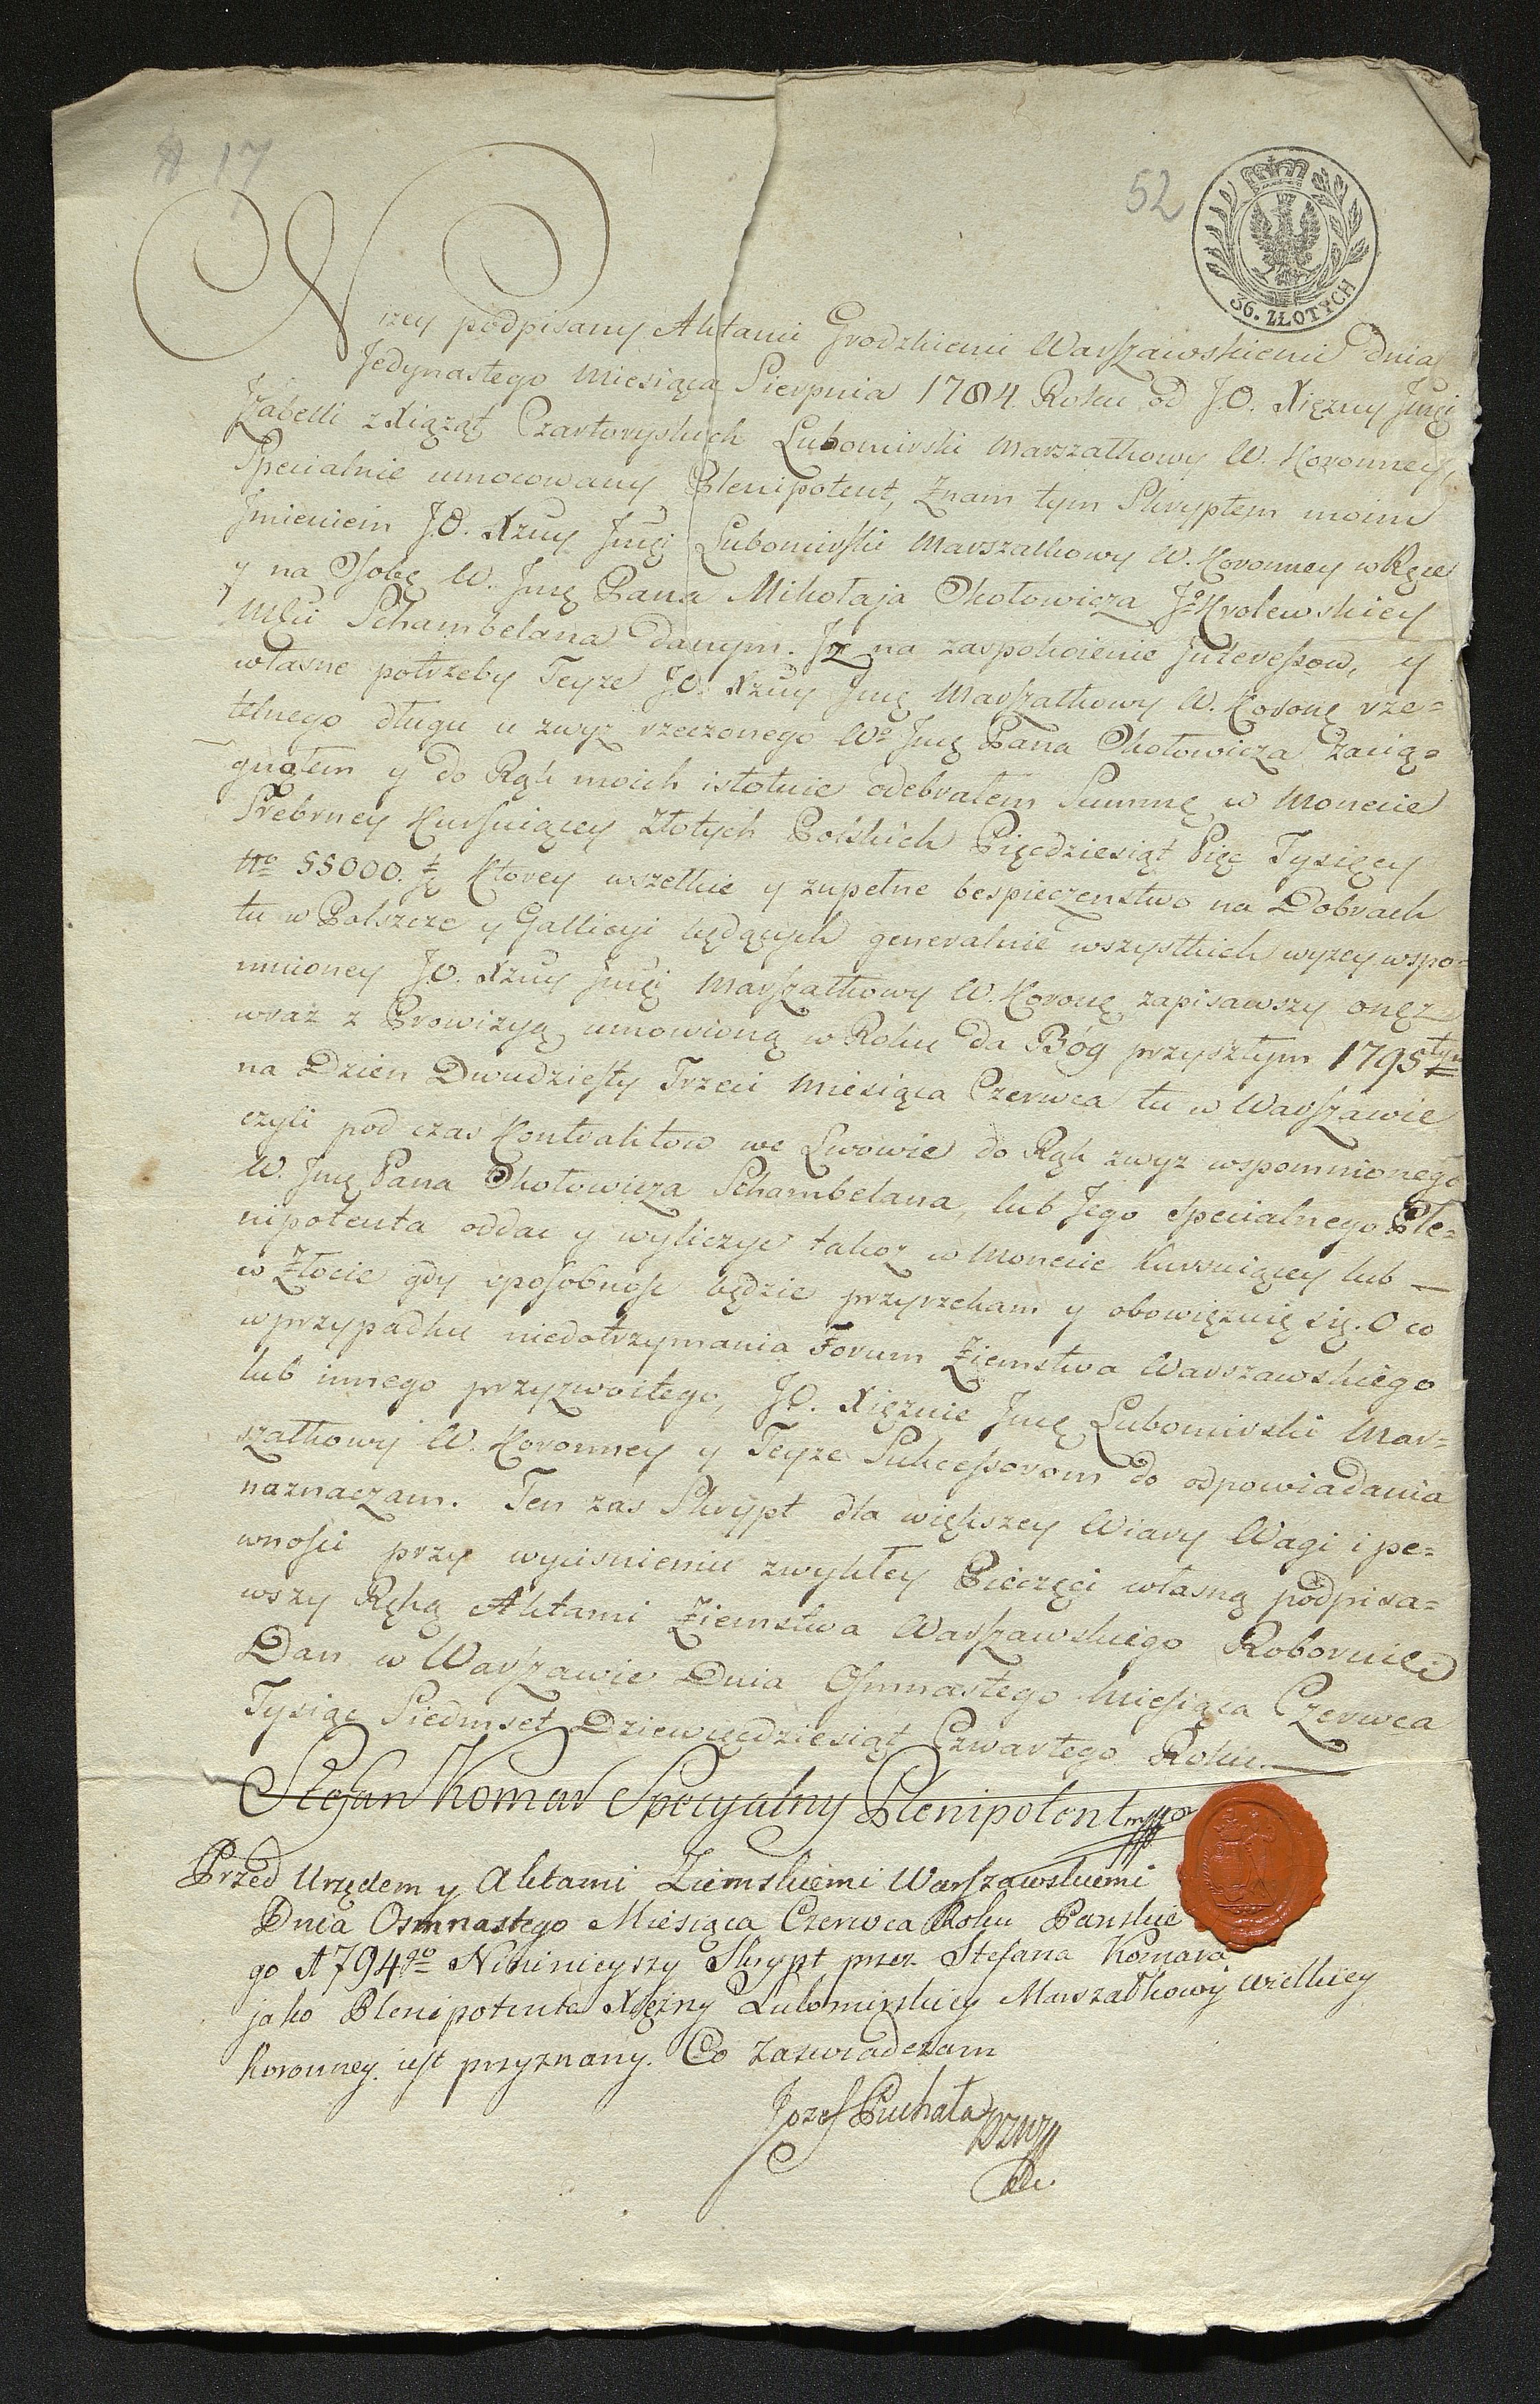 17
52
36. ZŁOTYCH
Niżey podpisany Aktami Grodzkiemi Warszawskiemi dnia
Jedynastego Miesiąca Sierpnia 1784. Roku od J.O. Xiężny Jmci
Izabelli z Xiążąt Czartoryskich Lubomirski Marszałkowy W. Koronney,
Specialnie umocowany Plenipotent, Znam tym Skryptem moim
Jmieniem J.O. Xżny Jmci Lubomirski Marszałkowy W. Koronney w Ręce
y na Osobę W. Jmć Pana Mikołaja Okołowicza Jº Krolewskiey
Mści Schambelana danym. Jż na zaspokoienie Jnteressow, y
własne potrzeby Teyże JO. Xżny Jmć Marszałkowy W. Koronę rze=
telnego długu u zwyż rzeczonego Wº Jmć Pana Okołowicza Zacią=
gnąłem y do Rąk moich istotnie odebrałem Summę w Monecie
Srebrney Kursuiącey Złotych Polskich Pięćdziesiąt Pięć Tysięcy
Nro 55000. Ktorey wszelkie y zupełne bespieczenstwo na Dobrach
tu w Polszcze y Gallicyi będących generalnie wszystkich wyżey wspo=
mnioney J.O. Xżny Jmći Marszałkowy W. Koronę zapisawszy onęż
wraz z Prowizyą umowioną w Roku da Bóg przyszłym 1795tym
na Dzien Dwudziesty Trzeci Miesiąca Czerwca tu w Warszawie
czyli pod czas Kontraktow we Lwowie do Rąk zwyż wspomnionego
W. Jmć Pana Okołowicza Schambelana, lub Jego specialnego Ple=
nipotenta oddac y wyliczyc takoż w Monecie Kursuiącey lub —
w Złocie gdy sposobnosc będzie przyrzekam y obowięzuię się. O co
w przypadku niedotrzymania Forum Ziemstwa Warszawskiego
lub innego przyzwoitego, JO. Xiężnie Jmć Lubomirski Mar=
szałkowy W. Koronney y Teyże Sukcessorom do odpowiadania
naznaczam. Ten zas Skrypt dla większey Wiary Wagi i pe=
wnosci przy wycisnieniu zwykłey Pieczęci własną podpisa=
wszy Ręką Aktami Ziemstwa Warszawskiego Roboruię
Dan w Warszawie Dnia Osmnastego Miesiąca Czerwca
Tysiąc Siedmset Dziewięćdziesiąt Czwartego Roku.
Stefan Komar Specyalny Plenipotent mp
Przed Urzędem y Aktami Ziemskiemi Warszawskiemi
Dnia Osmnastego Miesiąca Czerwca Roku Panskie
go 1794go Nininieyszy Skrypt przez Stefana Komara
jako Plenipotenta Xiężny Lubomirskiey Marszałkowy Wielkiey
Koronney. iest przyznany. Co Zaswiadczam
Jozef Puchała